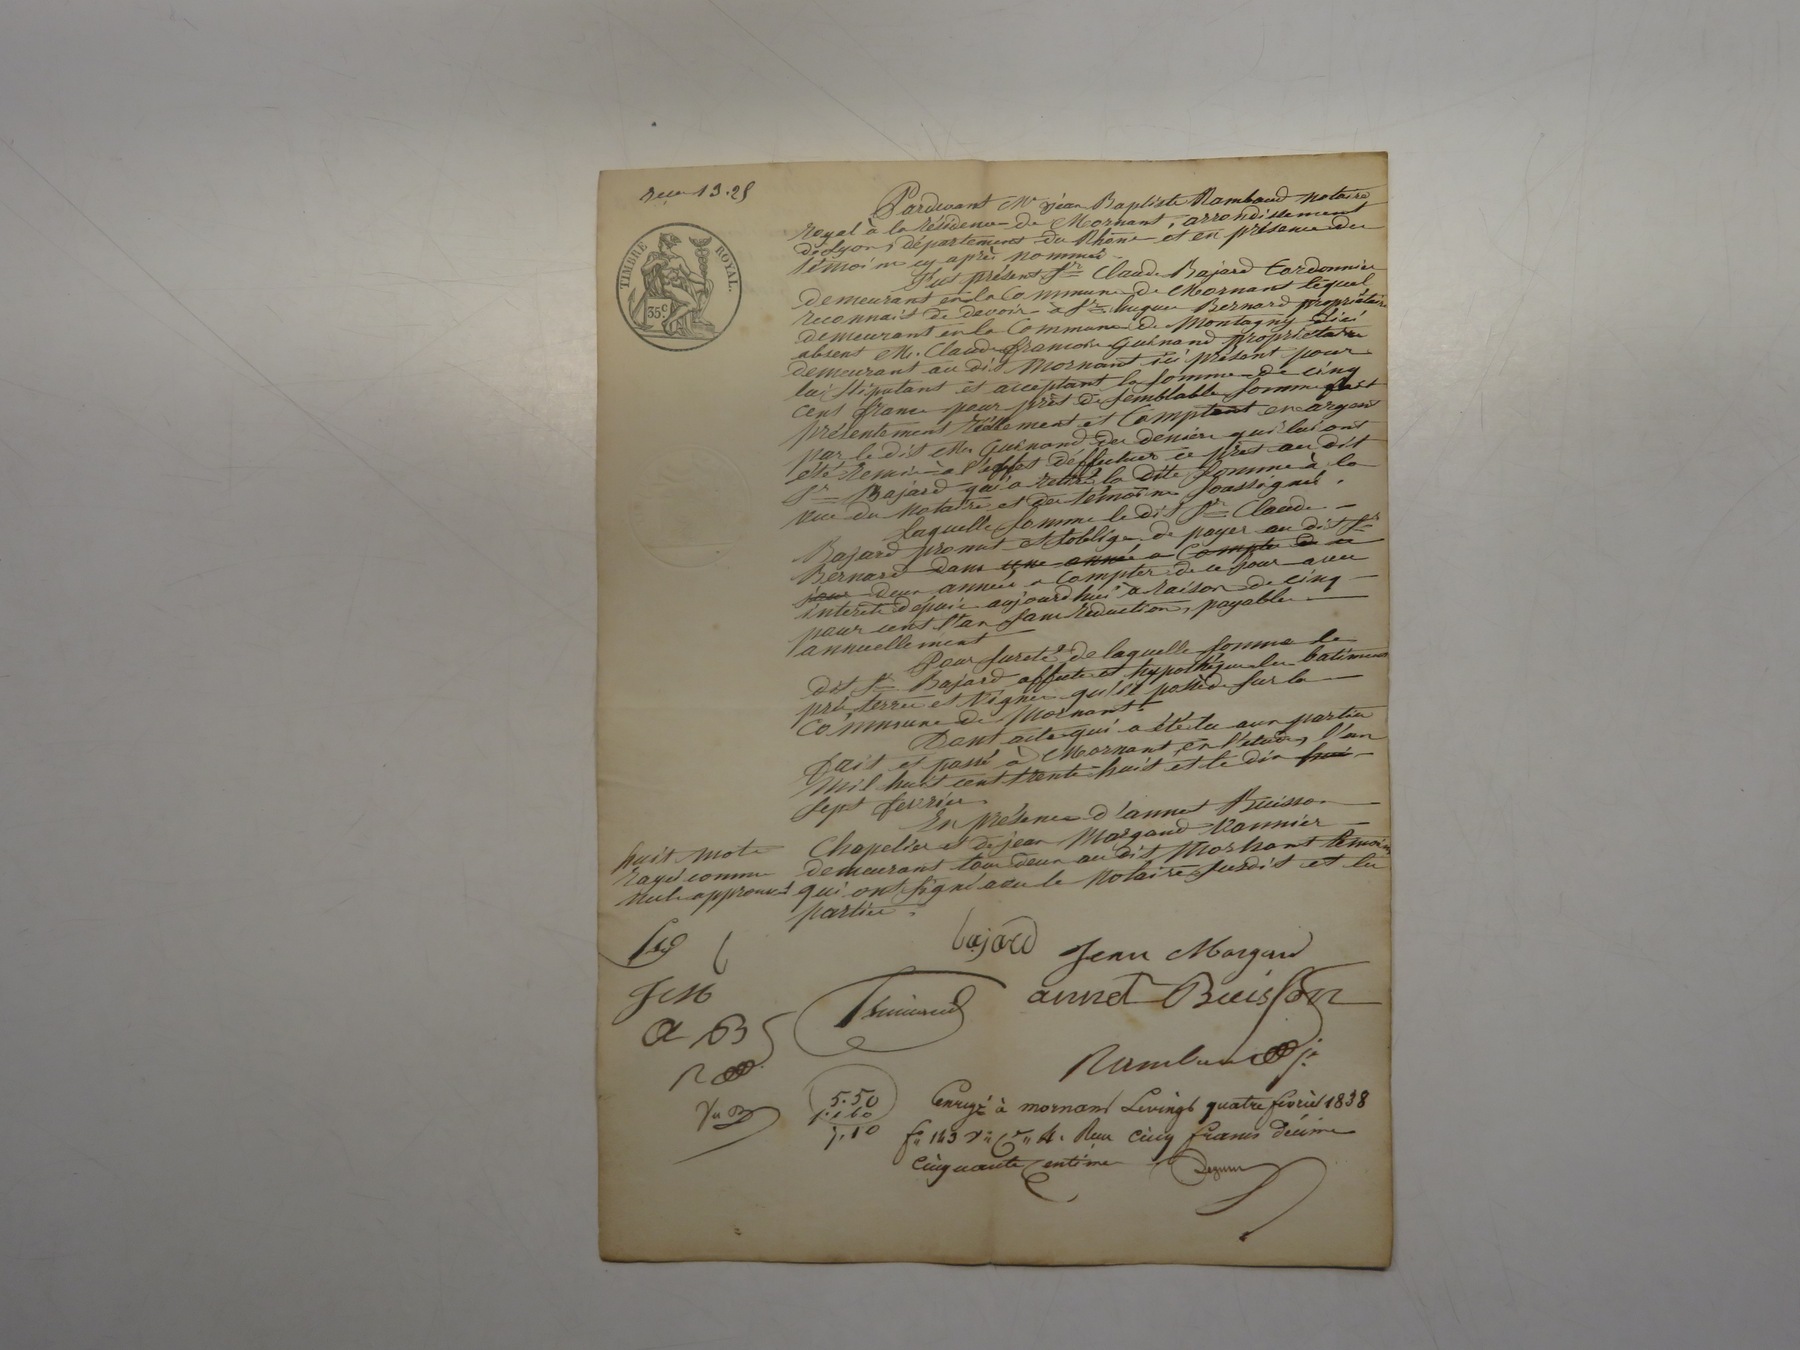 reçu 13.25
TIMBRE ROYAL.
35c
Pardevant Me jean Baptiste Rambaud notaire
royal à la résidence de Mornant, arrondissement
de Lyon, département du Rhône et en présence des
témoins cy après nommés.
Fut présent Sr Claude Bajard Cordonnier
demeurant en la Commune de Mornant lequel
reconnait de devoir à Sr hugue Bernard propriétaire
demeurant en la Commune de Montagny ici
absent M. Claude françois Guinand propriétaire
demeurant au dit Mornant ici présent pour
lui stipulant et acceptant la somme de cinq
cent francs pour prêt de semblable somme fait
présentement réellement et Comptant en argent
par le dit Mr Guinand des deniers qui lui ont
été remis à l'effet d'éffectuer ce prêt au dit
Sr Bajard qui a retiré la dite somme à la
vue du Notaire et des témoins soussignés.
laquelle somme le dit Sr Claude
Bajard promet et s'oblige de payer au dit Sr
Bernard dans une année a Compter de ce
jour deux années a Compter de ce jour avec
intérêts depuis aujourd'hui à raison de cinq
pour cent l'an sans réduction, payable
annuellement
Pour sureté de laquelle somme le
dit Sr Bajard affecte et hypothéque les batiments
prés terres et Vignes qu'il possède sur la
Commune de Mornant.
Dont acte qui a été lu aux parties
fait et passé à Mornant en l'étude, l'an
mil huit cent trente huit et le dix huit
sept fevrier.
En présence d'annet Buisson
Chapelier et de jean Margand Vannier
demeurant tous deux au dit Mornant témoins
qui ont signé avec le Notaire susdit et les
parties.
huit mots
rayés comme
nuls approuvés
bajard
Jean Margand
JcM
annet Buisson
A B
Guinand
Rambaud je
5.50
1.60
7.10
Enregé à mornant Le vingt quatre fevrier 1838
fo 143 Vo Ce 4. Reçu cinq francs décime
cinquante centimes